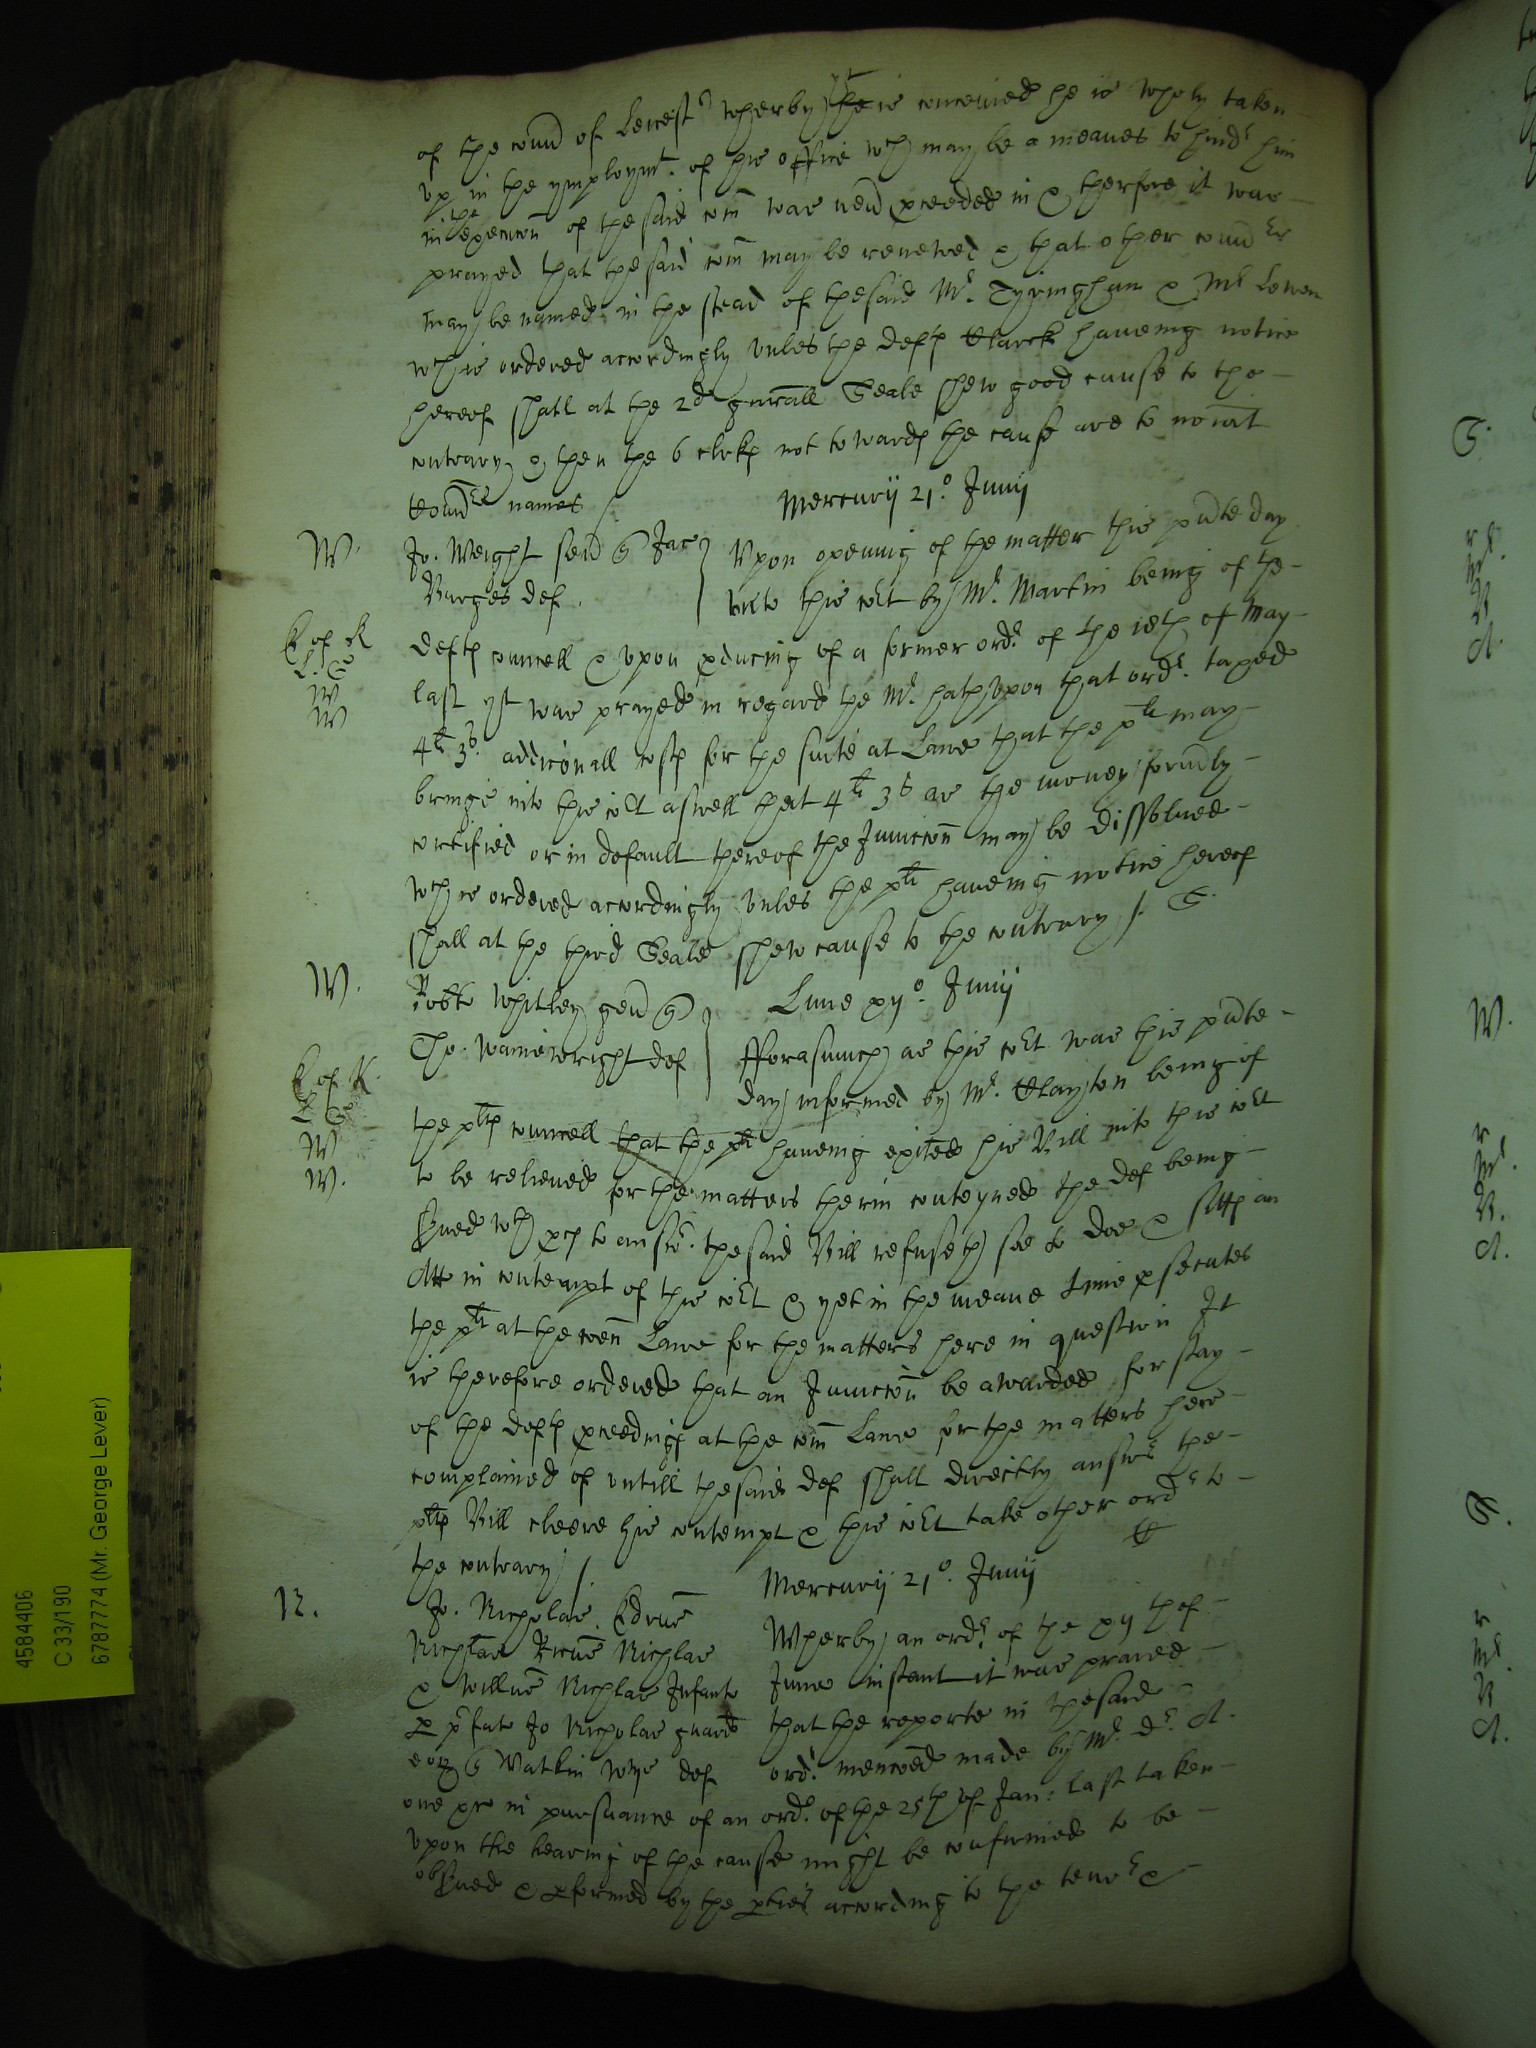 of the coun~ of Leicest~ wherby ^it^ he is conceived he is wholy taken
up in the ymploym^t. of his office w^ch may be a meanes to hind^r him
in ^the^ execuc~on of the said com~ was neu~ p~ceeded in & therfore it was
prayed that the said com~ may be renewed & that other com~^rs
may be named in the stead of the said M^r. Tyringham & M^r Lewen
w^ch is ordered accordingly unles the deft~ Clarck haveing notice
hereof shall at the 2^d gen~all Seale shew good cause to the
contrary & then the 6 clrks not towards the cause are to
Com~^rs names /
Mercurij 21^o. Junij
W.
Jo. Weight sen~ q Jac
Barges def.
Upon opening of the matter this p~nte day
unto this co^rt by M^r. Martin being of the
E of K
L. C
W
W
defts councell & upon p~ducing of a former ord^r. of the 18th of May
last yt was prayed in regard the M^r. hath upon that ord^r. taxed
4^li 3^s. addic~onall costs for the suite at Lawe that the p^lt may
bringe into this co^rt aswell that 4^li 3^s as the money form~ly
certified or in default thereof the Junccon~ may be dissolved
w^ch is ordered accordingly unles the p^lt haveing notice hereof
shall at the third Seale shew cause to the contrary /. S.
W.
Lune xij^o. Junij
Rob~te Whitley gen~ q
Tho. Wainewright def
Forasmuch as this co^rt was this p~nte
day informed by M^r. Clayton being of
E of K.
L C
W
W.
the p^lts councell that the p^lt haveing exi~ted his Bill into this co^rt
to be releived for the matters therin conteyned the def being
s~ved w^th p~ces to answ^r. the said Bill refuseth soe to doe & sitts in
Att in contempt of this co^rt & yet in the meane time p~secutes
the p^lt at the com~ Lawe for the matters here in question It
is therefore ordered that an Junccon~ be awarded for stay
of the defts p~ceedings at the com~ Lawe for the matters here
complained of untill the said def shall directly answ^r the
p^lts Bill cleere his contempt & this co^rt take other ord^r to
the contrary / C
Mercurij 21^o. Junij
N.
Jo. Nicholas Edrus~
Nichl~as Ricus~ Nichlas
& Willus~ Nichlas Infants
p~ p~fat Jo Nicholas guard
q Watkin Wms def
Wherby an ord^r. of the xij th of
June instant it was prayed
that the reporte in the said
ord^r. menc~oned made by M^r. D^r. A.
one p~ in pursuance of an ord^r. of the 25th of Jan: last taken
upon the hearing of the cause might be confirmed to be
obs~ved & p~formed by the p~ties according to the teno^r &
4584406
C 33/190
6787774 (Mr. George Lever)